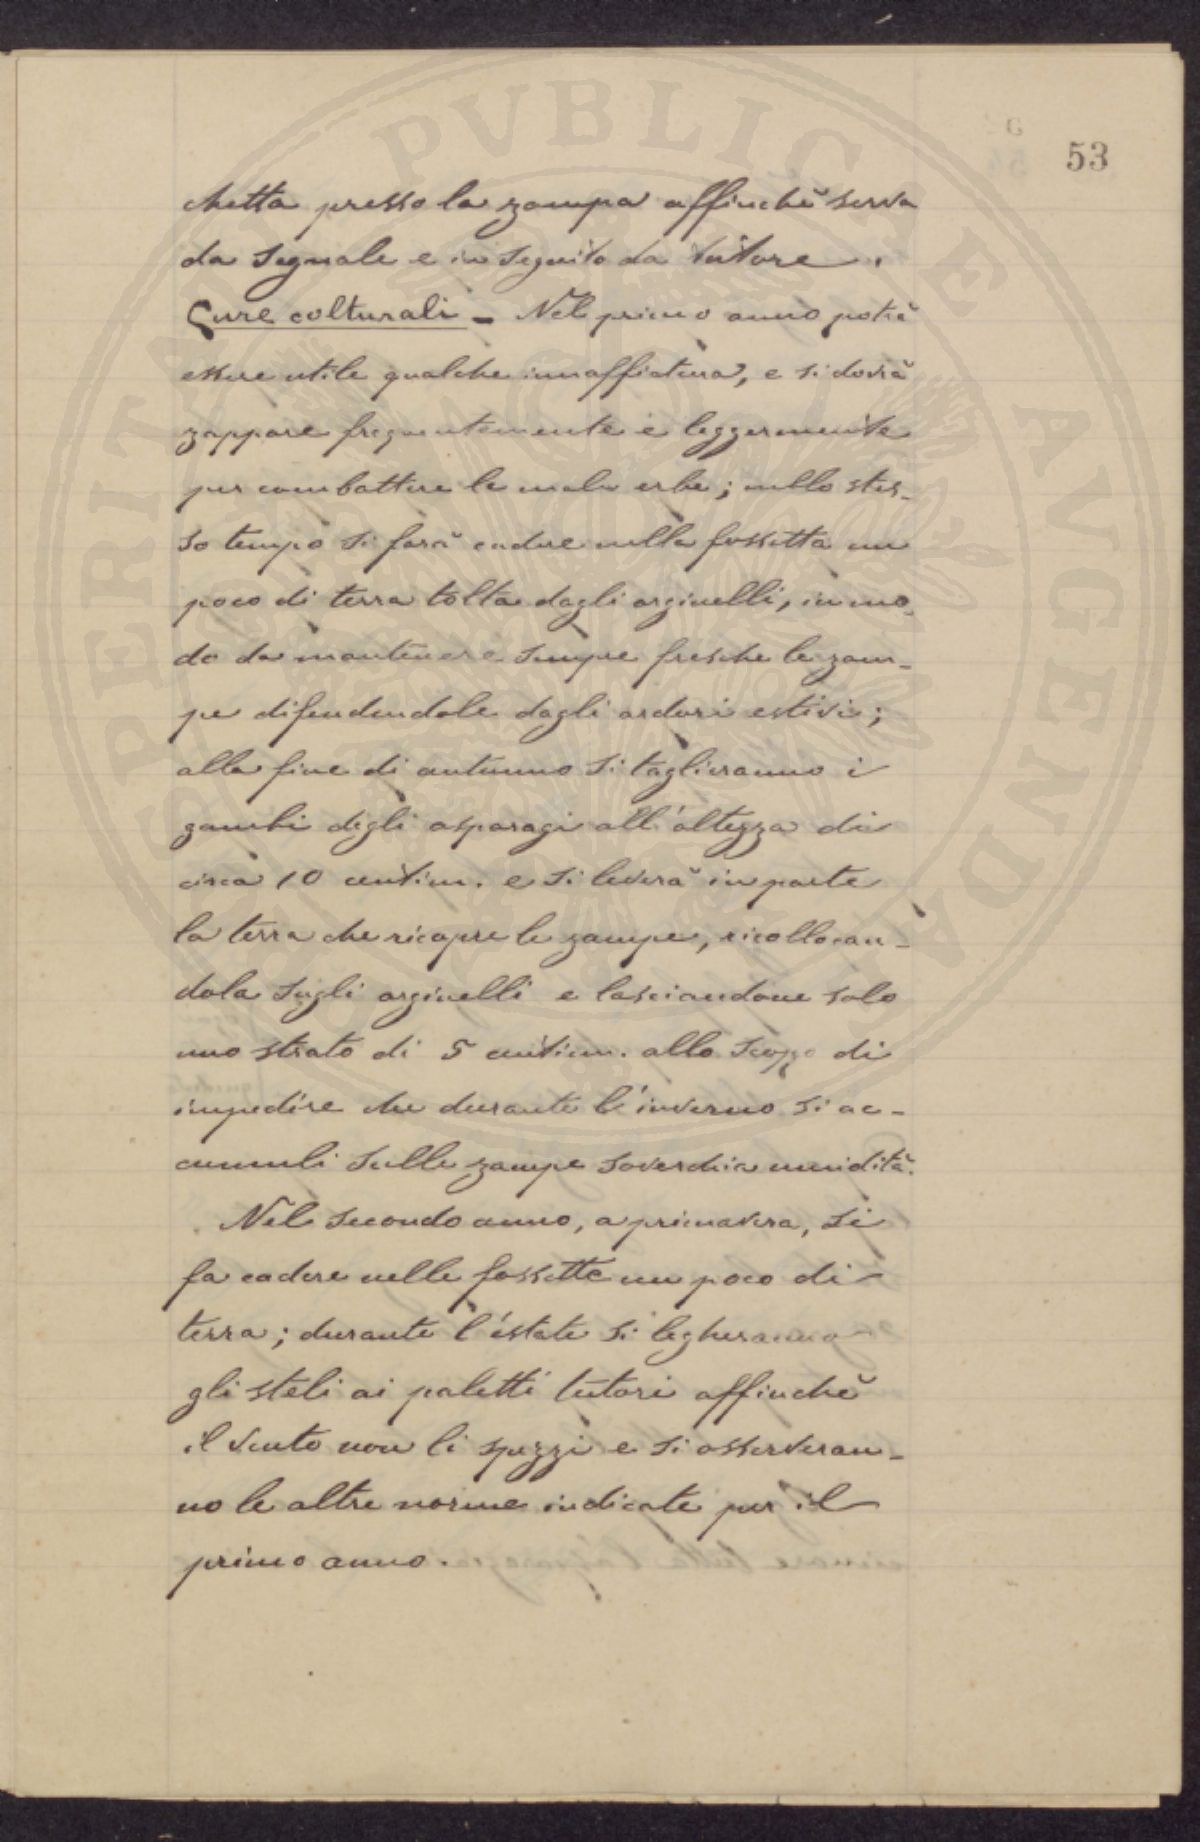 53
chetta presso la zampa affinchè serva
da segnale e in seguito da tutore.
Cure colturali - Nel primo anno potrà
essere utile qualche innaffiatura, e si dovrà
zappare frequentemente e leggermente
per combattere le male erbe; nello stes-
so tempo si farà cadere nella fossetta un
poco di terra tolta dagli arginelli, in mo-
do da mantenere sempre fresche le zam-
pe difendendole dagli ardori estivi;
alla fine di autunno si taglieranno i
gambi degli asparagi all'altezza di
circa 10 centim. e si leverà in parte
la terra che ricopre le zampe, ricollocan-
dola sugli arginelli e lasciandone solo
uno strato di 5 centim. allo scopo di
impedire che durante l'inverno si ac-
cumuli sulle zampe soverchia umidità.
Nel secondo anno, a primavera, si
fa cadere nelle fossette un poco di
terra; durante l'estate si legheranno
gli steli ai paletti tutori affinchè
il vento non li spezzi e si osserveran-
no le altre norme indicate per il
primo anno.